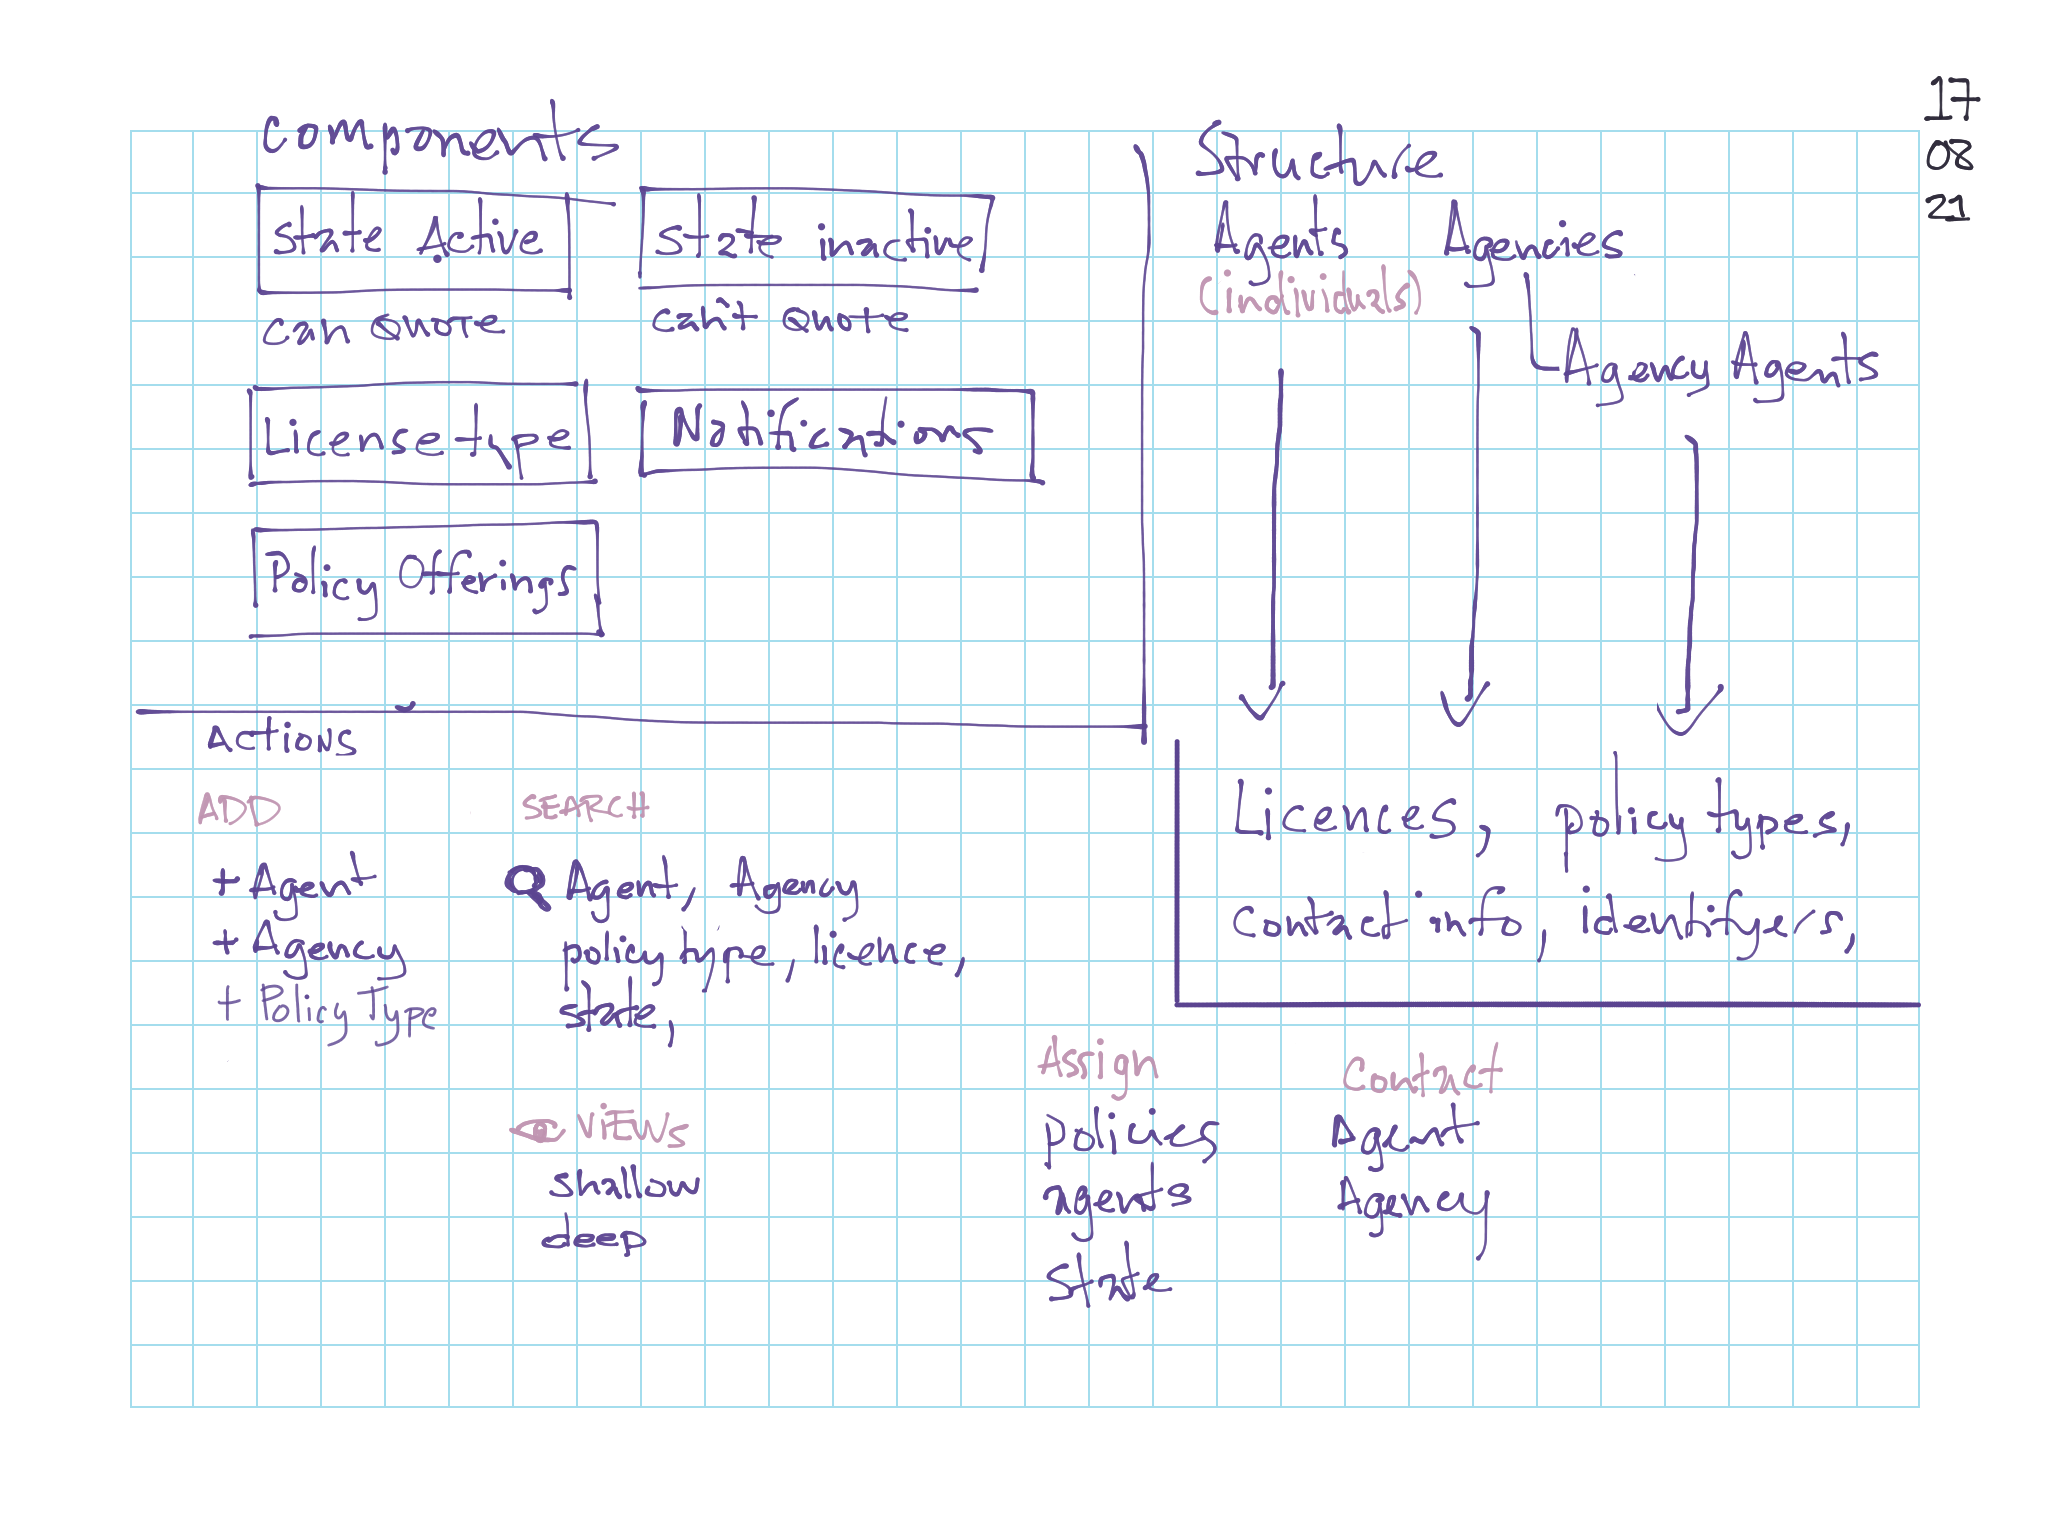 17
08
21
Components
State Active
can Quote
State inactive
can't Quote
License type
Notifications
Policy Offerings
Structure
Agents
(individuals)
Agencies
Agency Agents
Licences, policy types,
contact info, identifyers,
Actions
ADD
+ Agent
+ Agency
+ Policy Type
SEARCH
Agent, Agency
policy type, licence,
state,
ViEWs
shallow
deep
Assign
policies
agents
state
Contact
Agent
Agency